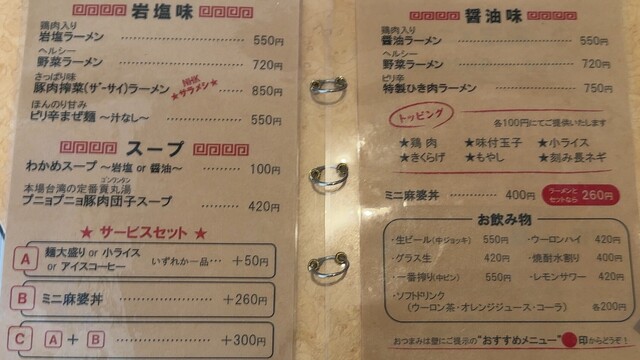 岩塩味
鶏肉入り
岩塩ラーメン 550円
ヘルシー
野菜ラーメン 720円
さっぱり味
豚肉搾菜(ザーサイ)ラーメン 850円
NHK
★サラメシ★
ほんのり甘み
ピリ辛まぜ麺 〜汁なし〜 550円
スープ
わかめスープ 〜岩塩 or 醤油〜 100円
本場台湾の定番貢丸湯
ゴンワンタン
プニョプニョ豚肉団子スープ 420円
★ サービスセット ★
A 麺大盛り or 小ライス
or アイスコーヒー いずれか一品… +50円
B ミニ麻婆丼 +260円
C A + B +300円
醤油味
鶏肉入り
醤油ラーメン 550円
ヘルシー
野菜ラーメン 720円
ピリ辛
特製ひき肉ラーメン 750円
トッピング 各100円にてご提供いたします
★鶏肉 ★味付玉子 ★小ライス
★きくらげ ★もやし ★刻み長ネギ
ミニ麻婆丼 400円 ラーメンとセットなら 260円
お飲み物
・生ビール(中ジョッキ) 550円 ・ウーロンハイ 420円
・グラス生 420円 ・焼酎水割り 400円
・一番搾り(中ビン) 550円 ・レモンサワー 420円
・ソフトドリンク
(ウーロン茶・オレンジジュース・コーラ) 各200円
おつまみは壁にご提示の"おすすめメニュー"●印からどうぞ!